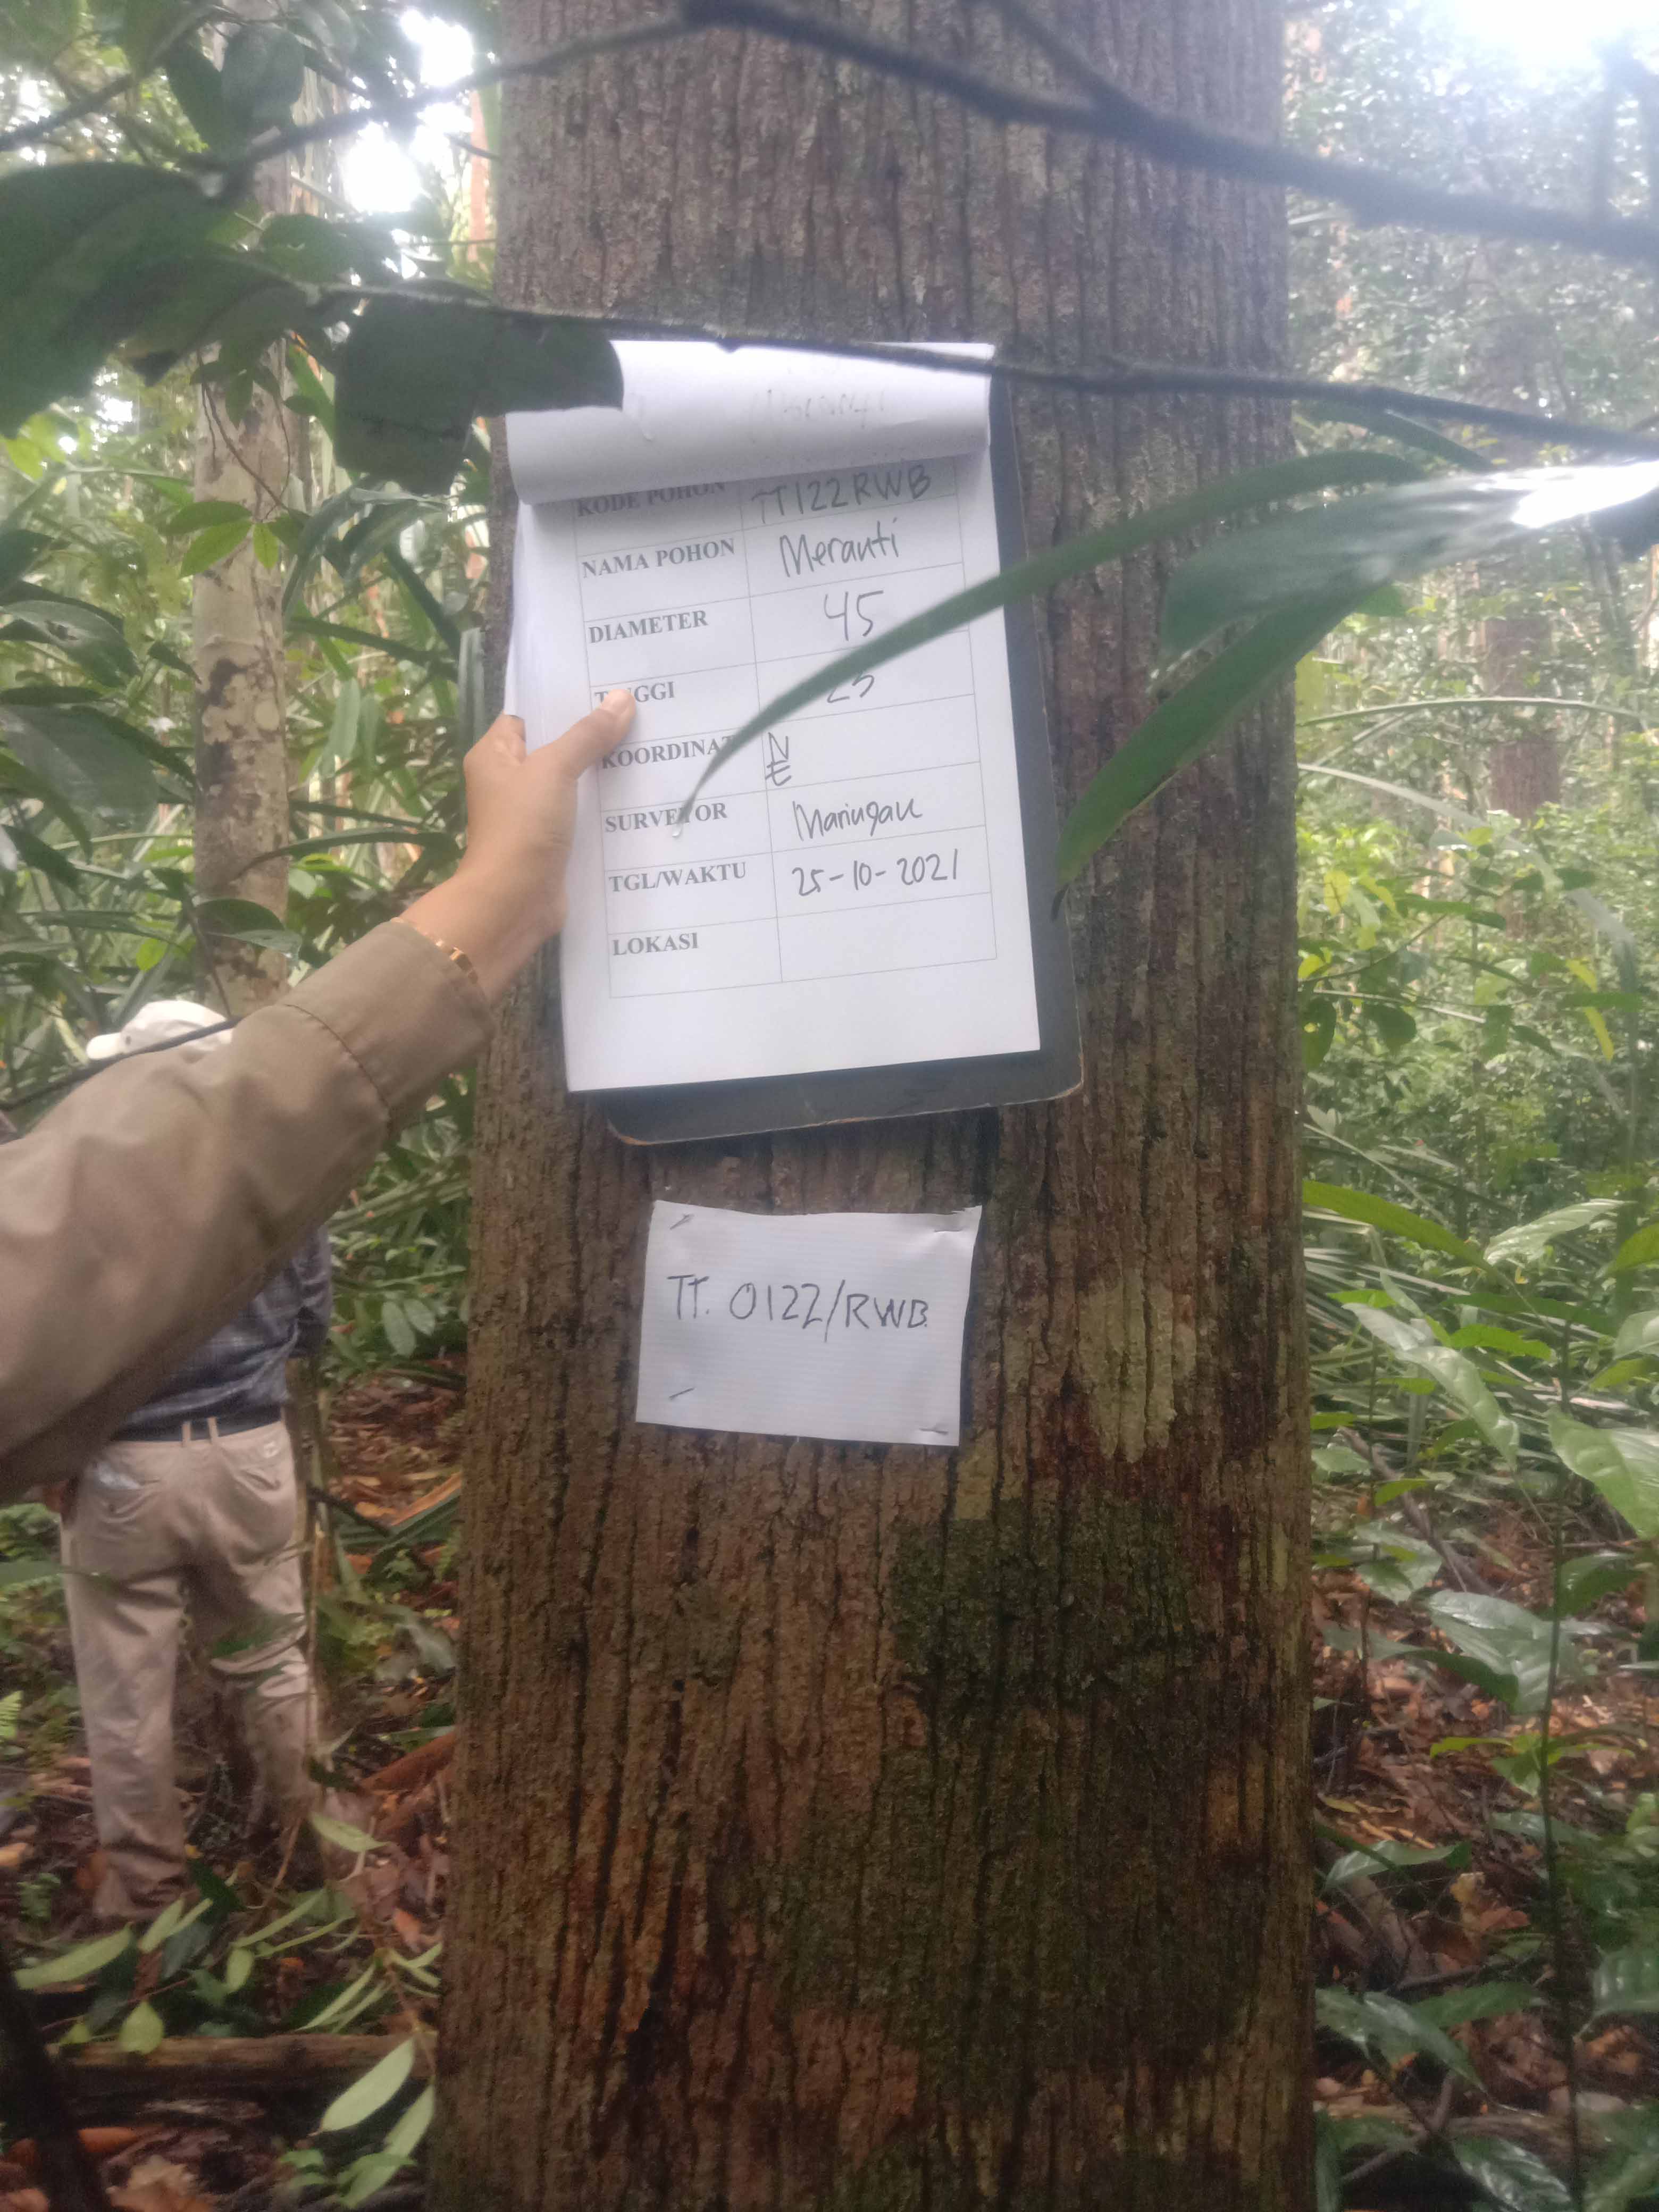 KODE POHON TT122RWB
NAMA POHON Meranti
DIAMETER 45
TINGGI 25
KOORDINAT N
E
SURVEYOR Maringan
TGL/WAKTU 25-10-2021
LOKASI
TT. 0122/RWB